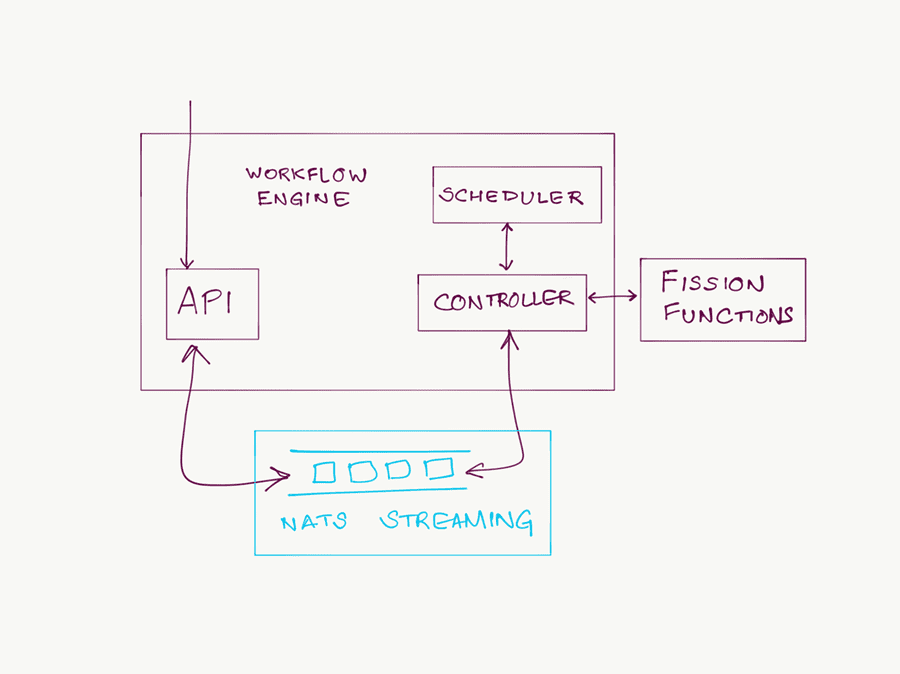 WORKFLOW
ENGINE
SCHEDULER
API
CONTROLLER
FISSION
FUNCTIONS
NATS STREAMING